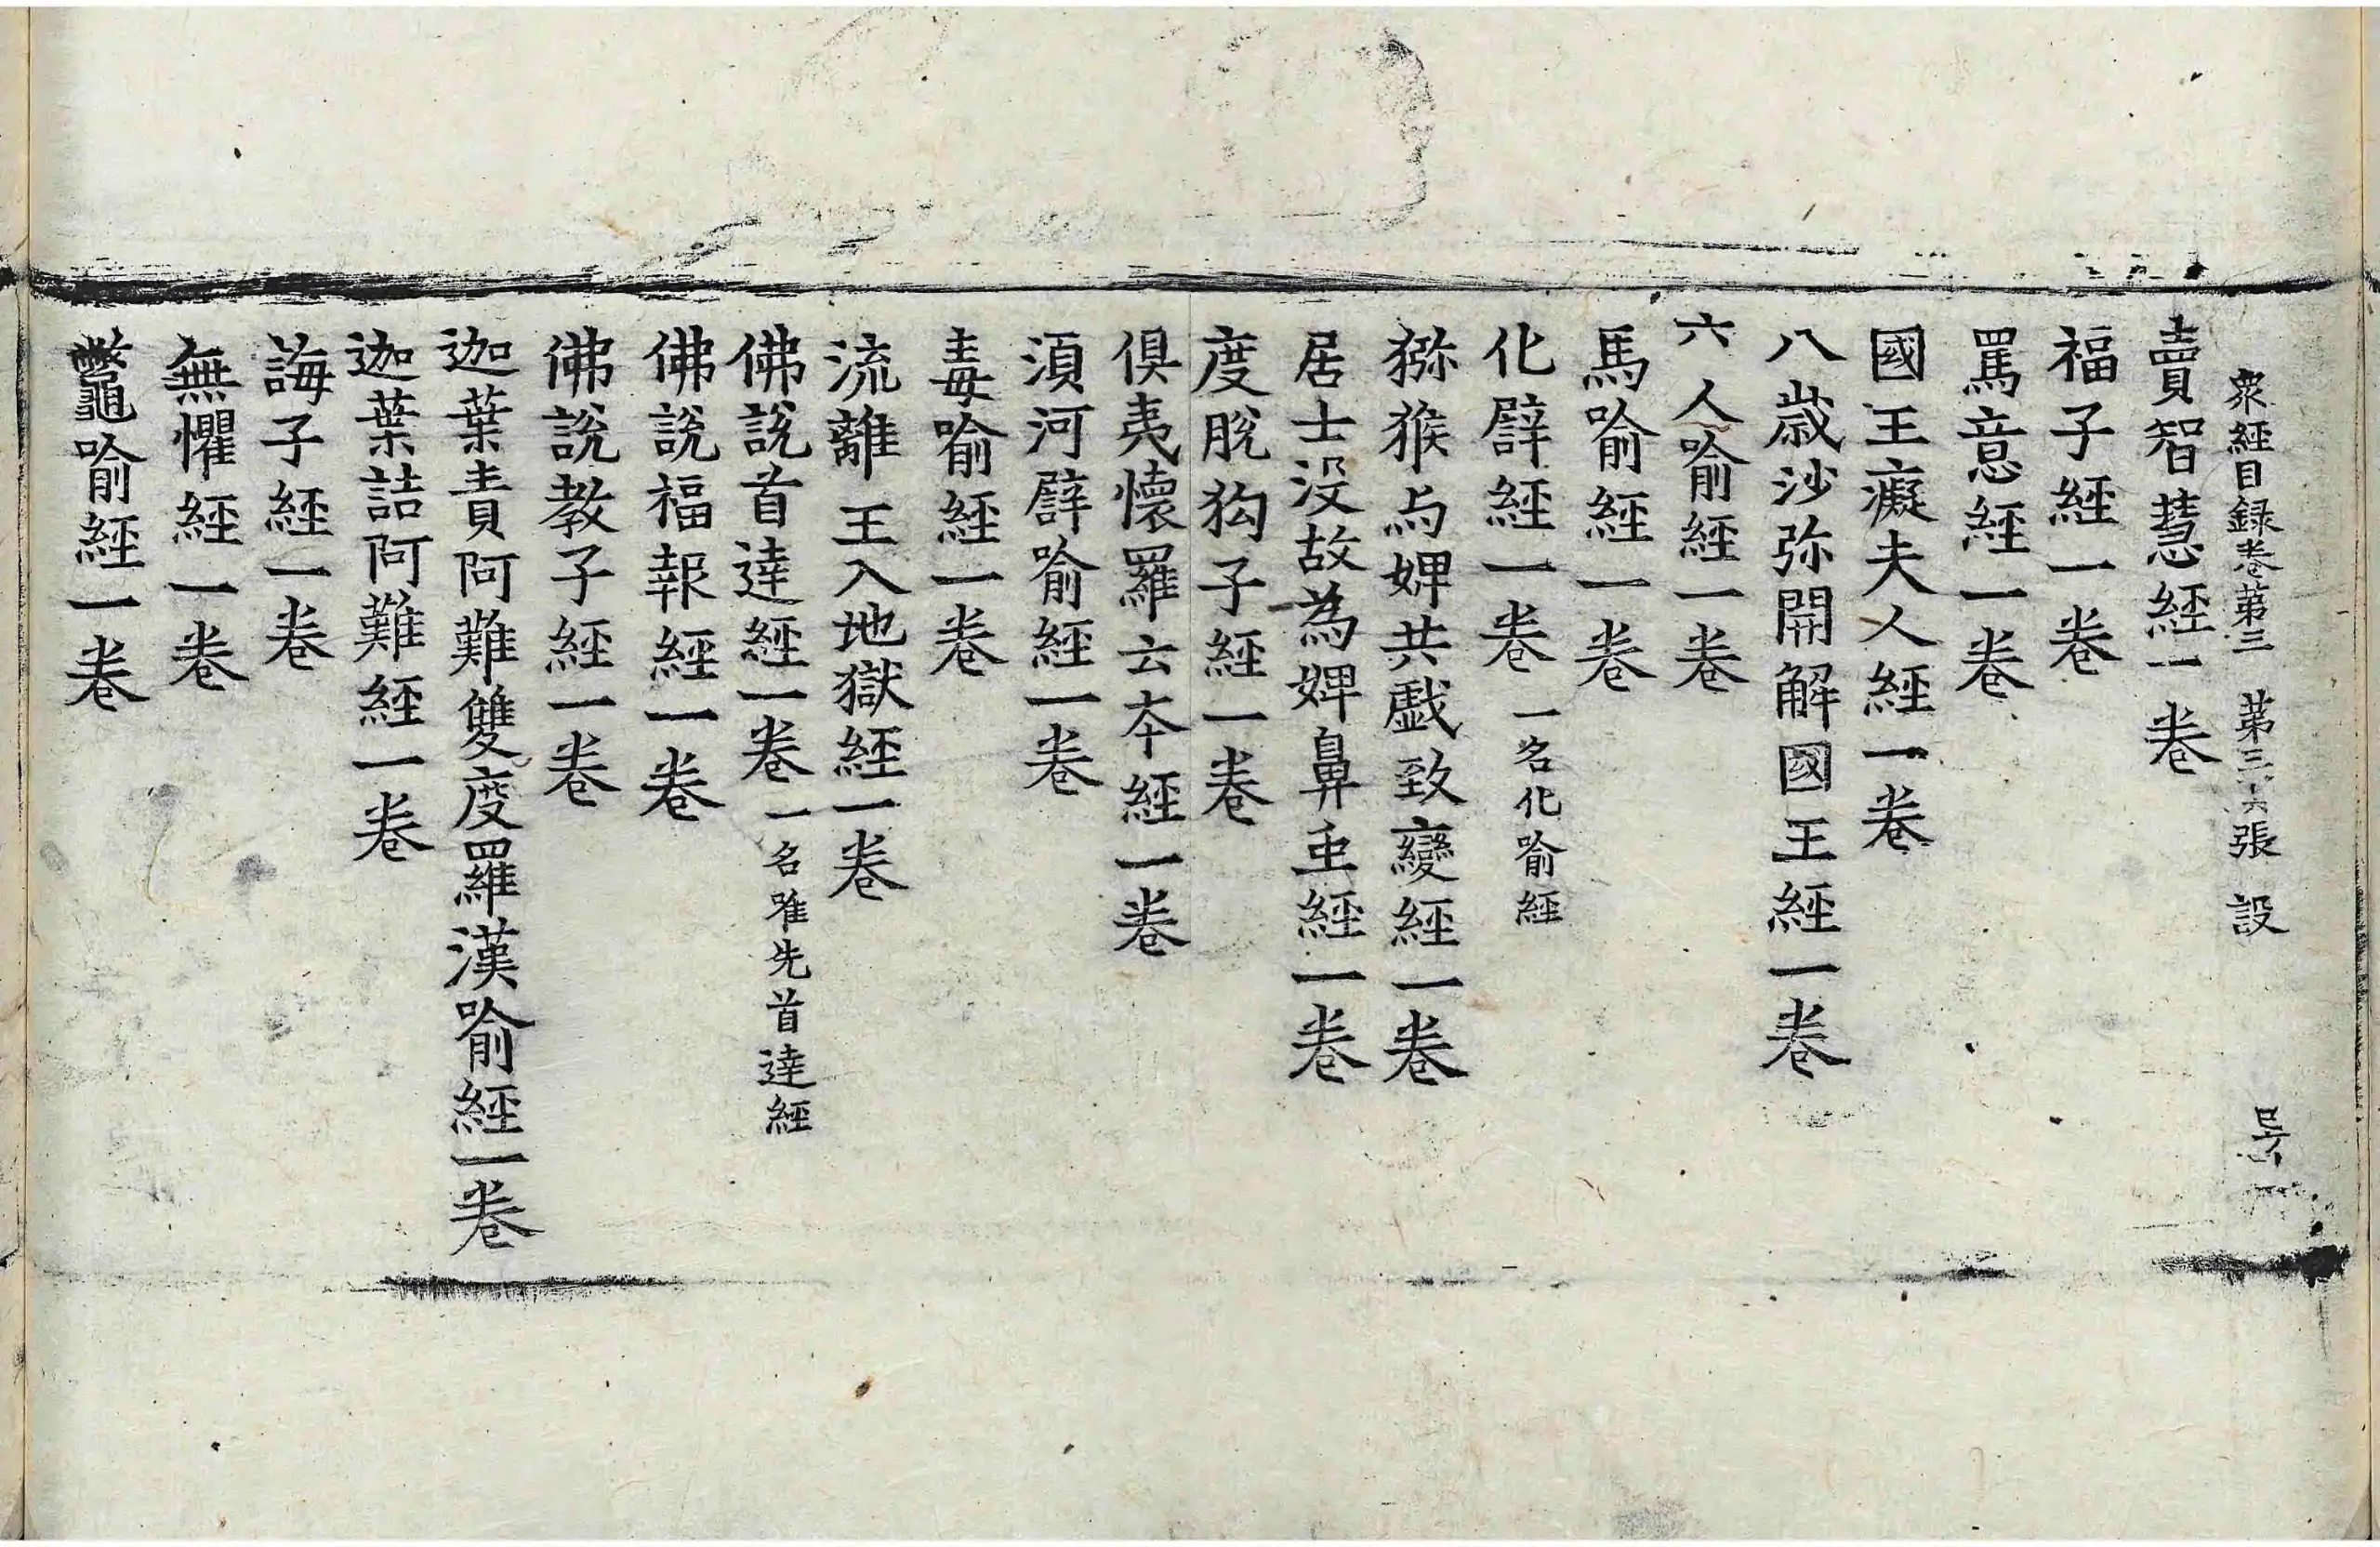 衆經目録卷第三 第三十六張 設
賣智慧經一卷
福子經一卷
罵意經一卷
國王癡夫人經一卷
八歳沙弥開解國王經一卷
六人喻經一卷
馬喻經一卷
化譬經一卷 一名化喻經
猕猴与婢共戯致變經一卷
居士没故為婢鼻虫經一卷
度脫狗子經一卷
俱夷懷羅云夲經一卷
湏河譬喻經一卷
毒喻經一卷
流離王入地獄經一卷
佛說首達經一卷 一名唯先首達經
佛說福報經一卷
佛說教子經一卷
迦葉責阿難雙度羅漢喻經一卷
迦葉詰阿難經一卷
誨子經一卷
無懼經一卷
鼈喻經一卷